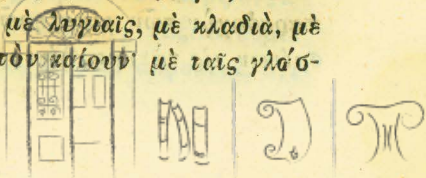 μὲ λυγιαῖς, μὲ κλαδιὰ, μὲ
τὸν καίουν· μὲ ταῖς γλώσ-